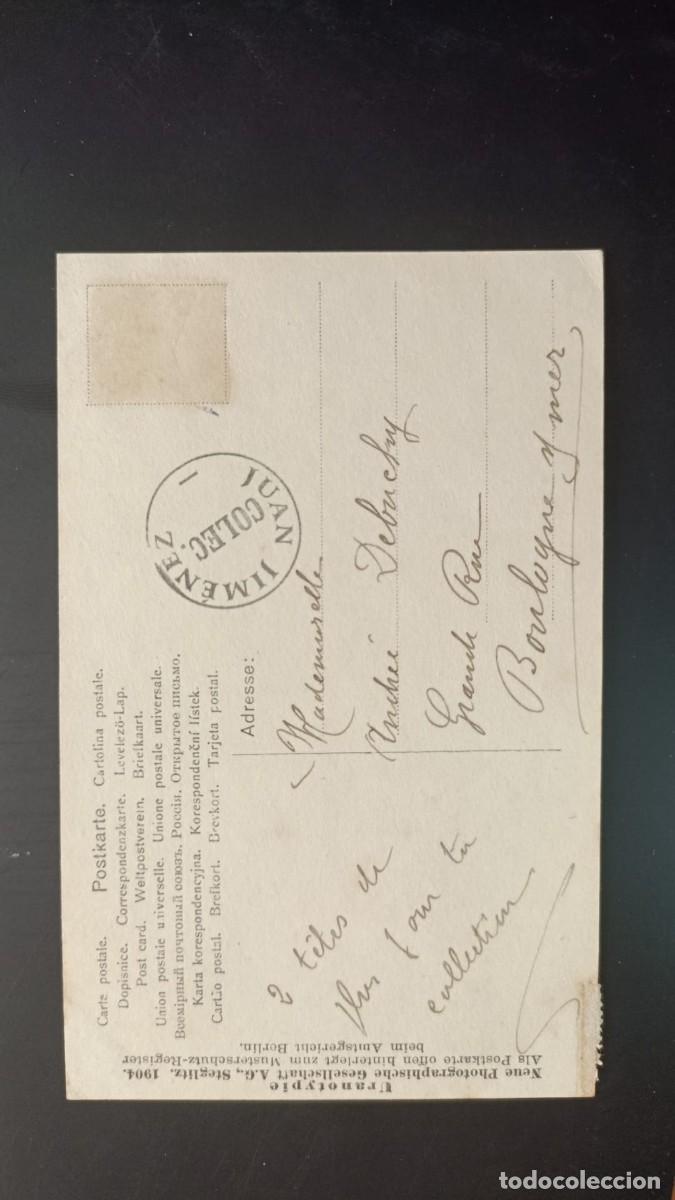 Carte postale. Postkarte. Cartolina postale.
Dopisnice. Correspondenzkarte. Levelező-Lap.
Post card. Weltpostverein. Briefkaart.
Union postale universelle. Unione postale universale.
Всемірный почтовый союзъ. Россія. Открытое письмо.
Karta korespondencyjna. Korespondenční lístek.
Cartão postal. Brefkort. Brevkort. Tarjeta postal.
JUAN JIMENEZ
COLEC.
Adresse:
Mademoiselle
Debuchy
Grande Rue
Boulogne s/ mer
2 têtes de
plus pour ta
collection
Uranotypie
Neue Photographische Gesellschaft A.G., Steglitz. 1904.
Als Postkarte offen hinterlegt zum Musterschutz-Register
beim Amtsgericht Berlin.
todocoleccion